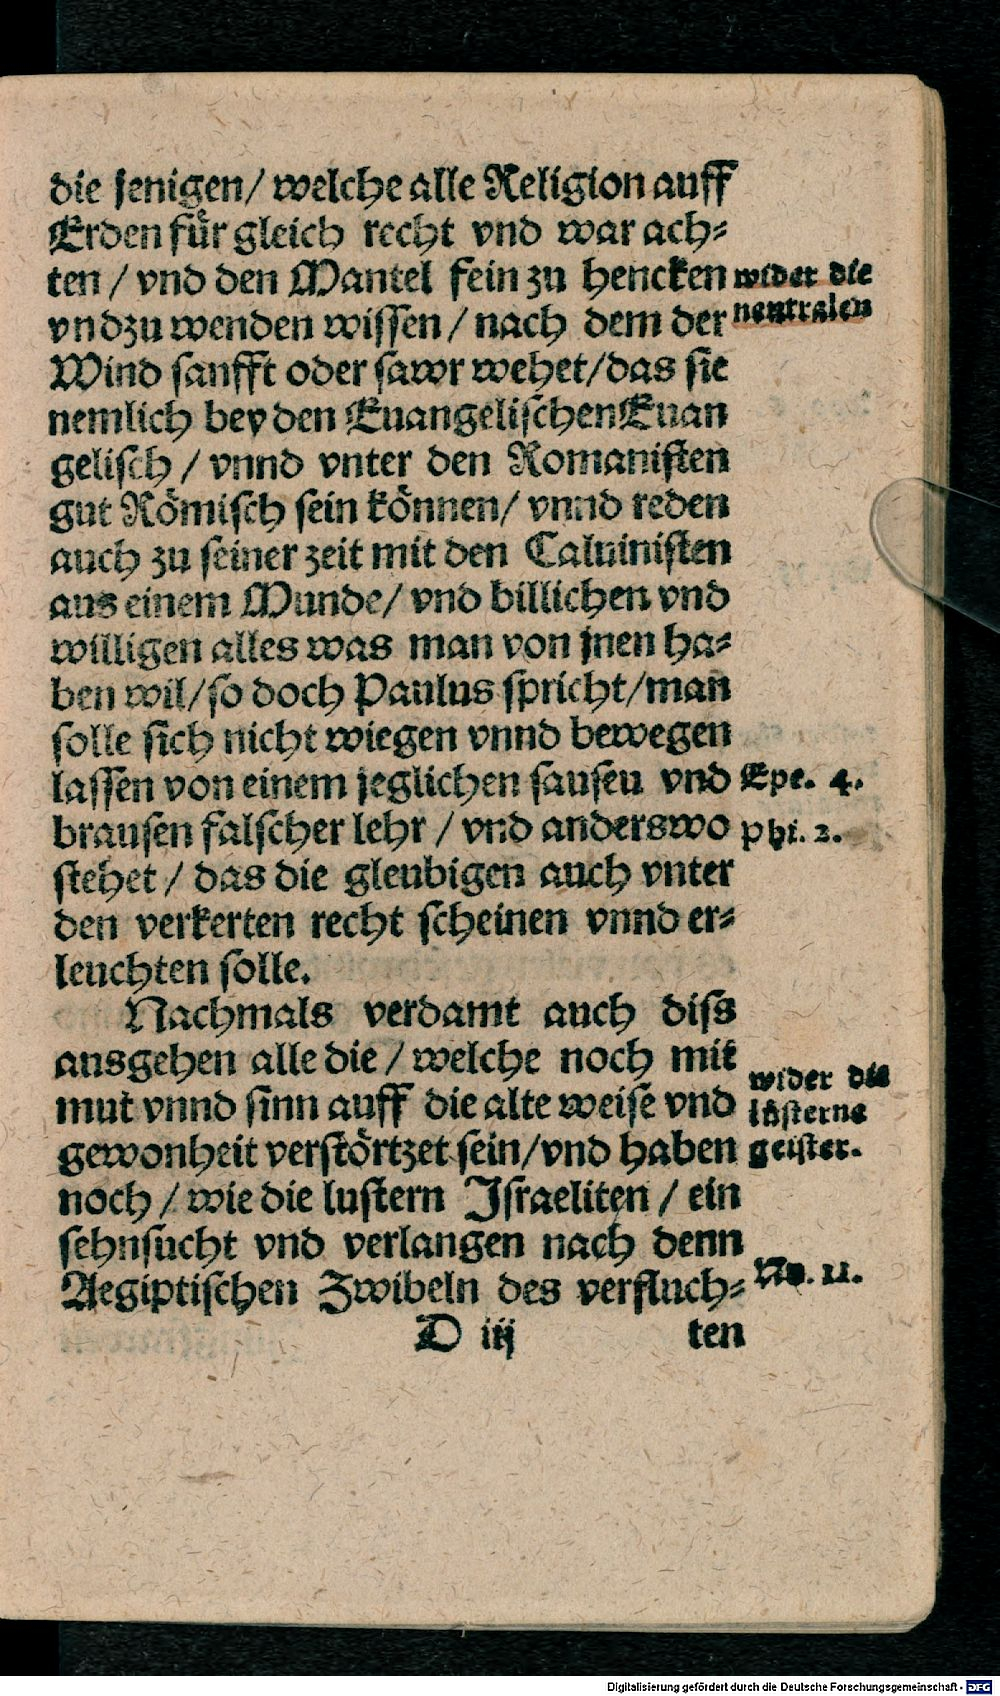 die jenigen/ welche alle Religion auff
Erden für gleich recht vnd war ach⸗
ten / vnd den Mantel fein zu hencken
wider die
neutralen
vndzu wenden wissen / nach dem der
Wind sanfft oder sawr wehet/das sie
nemlich bey den EuangelischenEuan
gelisch / vnnd vnter den Romanisten
gut Römisch sein können/ vnnd reden
auch zu seiner zeit mit den Caluinisten
aus einem Munde/ vnd billichen vnd
willigen alles was man von jnen ha⸗
ben wil/so doch Paulus spricht/man
solle sich nicht wiegen vnnd bewegen
lassen von einem jeglichen sauseu vnd
Epe. 4.
brausen falscher lehr / vnd anderswo
Phi. 2.
stehet / das die gleubigen auch vnter
den verkerten recht scheinen vnnd er⸗
leuchten solle.
Nachmals verdamt auch diss
ausgehen alle die / welche noch mit
wider die
lüsterne
geister.
mut vnnd sinn auff die alte weise vnd
gewonheit verstörtzet sein/vnd haben
noch / wie die lustern Israeliten / ein
sehnsucht vnd verlangen nach denn
Aegiptischen Zwibeln des verfluch⸗
Nu. 11.
D iij
ten
Digitalisierung gefördert durch die Deutsche Forschungsgemeinschaft - DFG